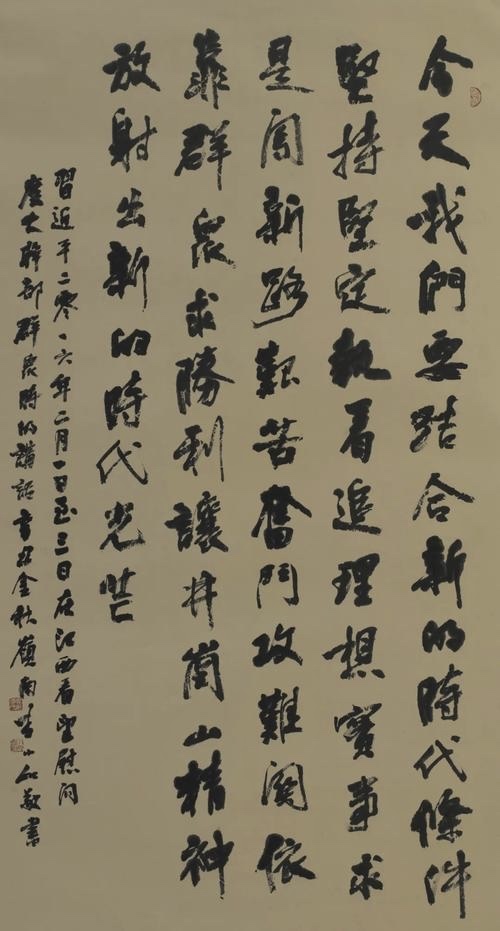 今天我們要結合新的時代條件
堅持堅定執着追理想實事求
是闖新路艱苦奮鬥攻難關依
靠群眾求勝利讓井崗山精神
放射出新的時代光芒
習近平二零一六年二月一日至三日在江西看望慰問
廣大幹部群眾時的講話 金秋嶺南 敬書